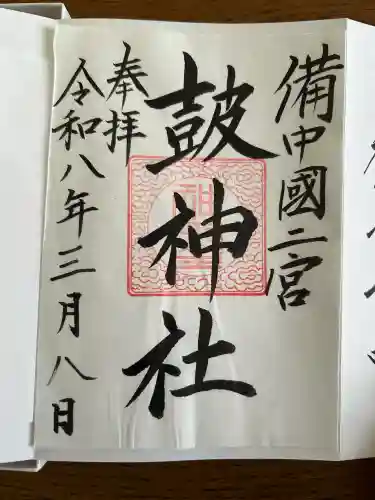 備中國二宮
鼓神社
奉拝
令和八年三月八日